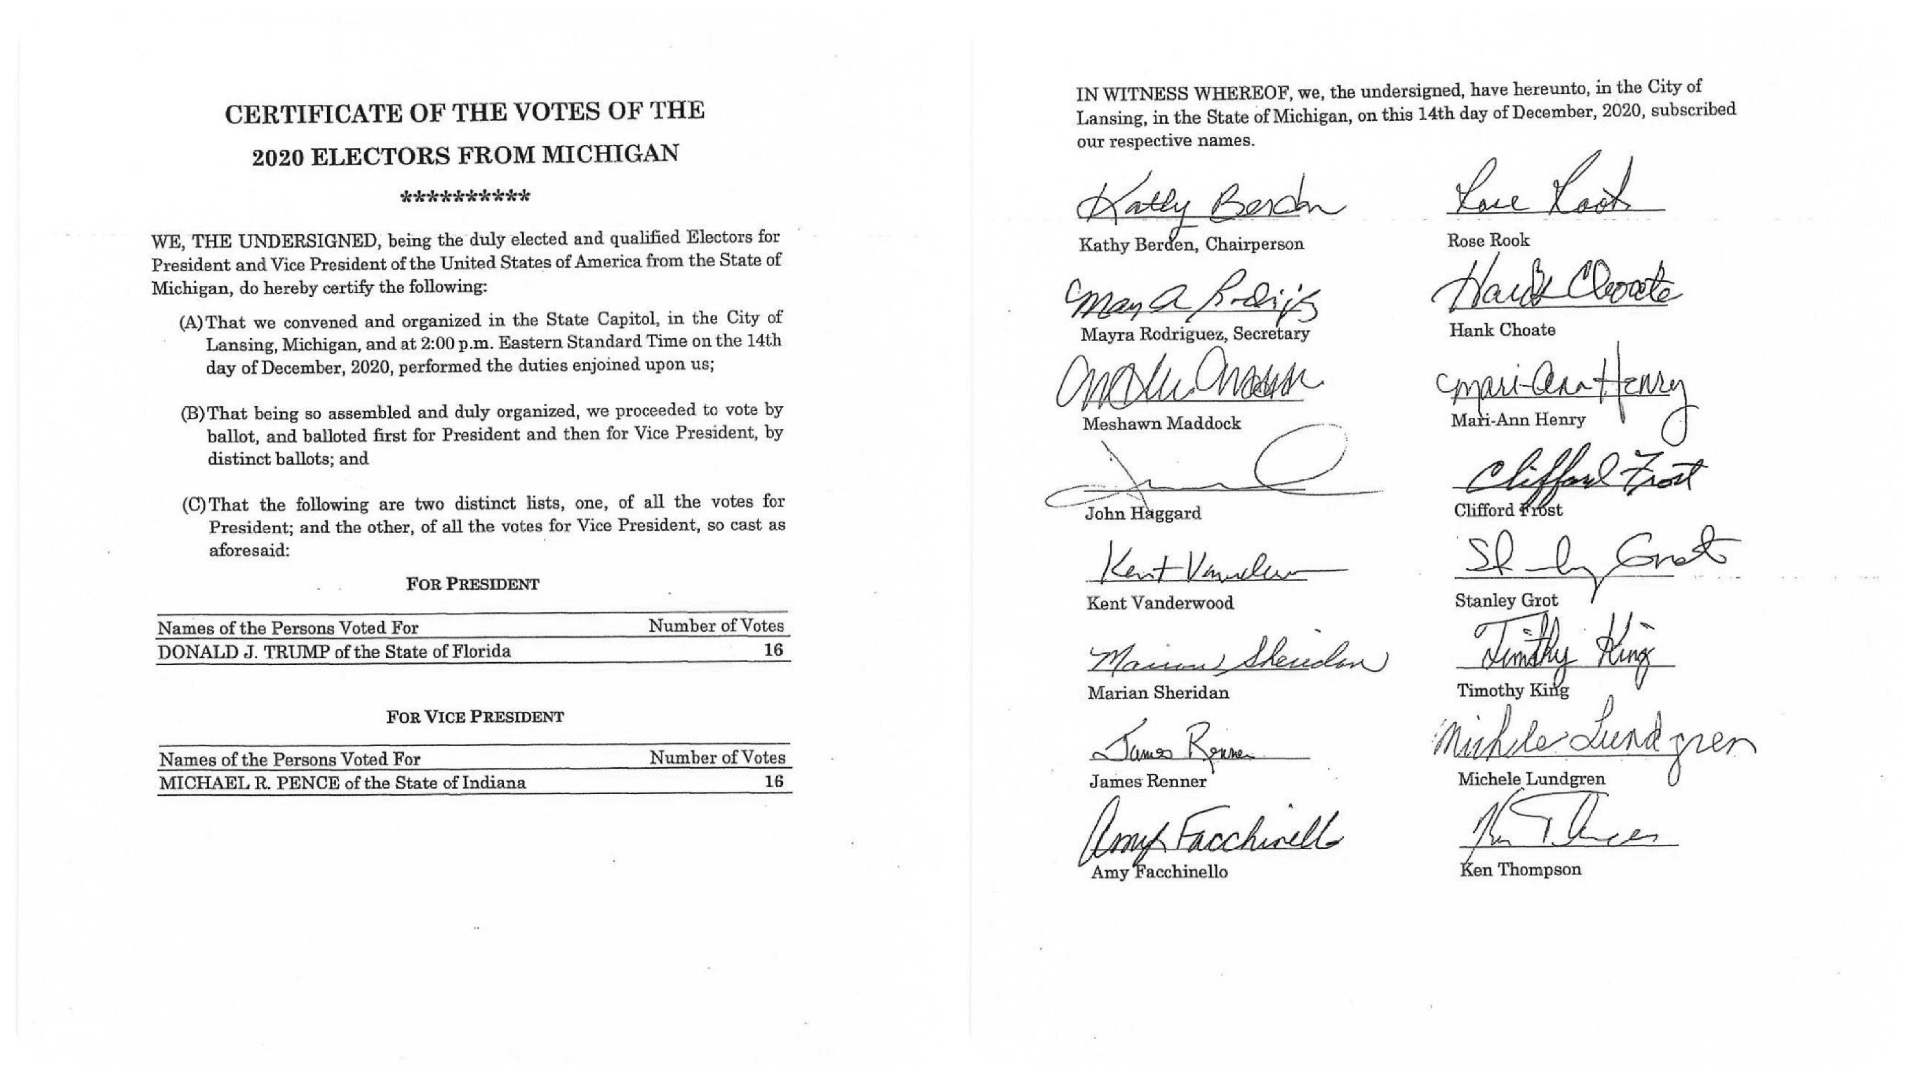 CERTIFICATE OF THE VOTES OF THE
2020 ELECTORS FROM MICHIGAN
**********
WE, THE UNDERSIGNED, being the duly elected and qualified Electors for
President and Vice President of the United States of America from the State of
Michigan, do hereby certify the following:
(A) That we convened and organized in the State Capitol, in the City of
Lansing, Michigan, and at 2:00 p.m. Eastern Standard Time on the 14th
day of December, 2020, performed the duties enjoined upon us;
(B) That being so assembled and duly organized, we proceeded to vote by
ballot, and balloted first for President and then for Vice President, by
distinct ballots; and
(C) That the following are two distinct lists, one, of all the votes for
President; and the other, of all the votes for Vice President, so cast as
aforesaid:
FOR PRESIDENT
Names of the Persons Voted For Number of Votes
DONALD J. TRUMP of the State of Florida 16
FOR VICE PRESIDENT
Names of the Persons Voted For Number of Votes
MICHAEL R. PENCE of the State of Indiana 16
IN WITNESS WHEREOF, we, the undersigned, have hereunto, in the City of
Lansing, in the State of Michigan, on this 14th day of December, 2020, subscribed
our respective names.
Kathy Berden Rose Rook
Kathy Berden, Chairperson Rose Rook
Hank Choate
Mayra Rodriguez, Secretary Hank Choate
Mari-Ann Henry
Meshawn Maddock Mari-Ann Henry
Clifford Frost
John Haggard Clifford Frost
Kent
Kent Vanderwood Stanley Grot
Marian Sheridan Timothy King
Marian Sheridan Timothy King
James Renner Michele Lundgren
James Renner Michele Lundgren
Amy Facchinello
Amy Facchinello Ken Thompson